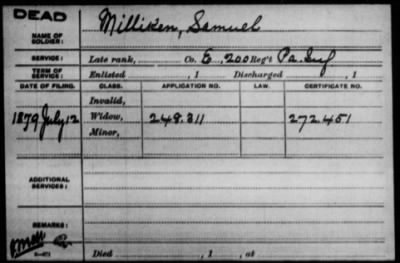 DEAD
NAME OF SOLDIER: Milliken, Samuel
SERVICE: Late rank, Co. E, 200 Reg't Pa. Inf
TERM OF SERVICE: Enlisted , 1 Discharged , 1
DATE OF FILING. CLASS. APPLICATION NO. LAW. CERTIFICATE NO.
Invalid,
1879 July 12 Widow, 248.311 272.451
Minor,
ADDITIONAL SERVICES:
REMARKS:
Died , 1 , at